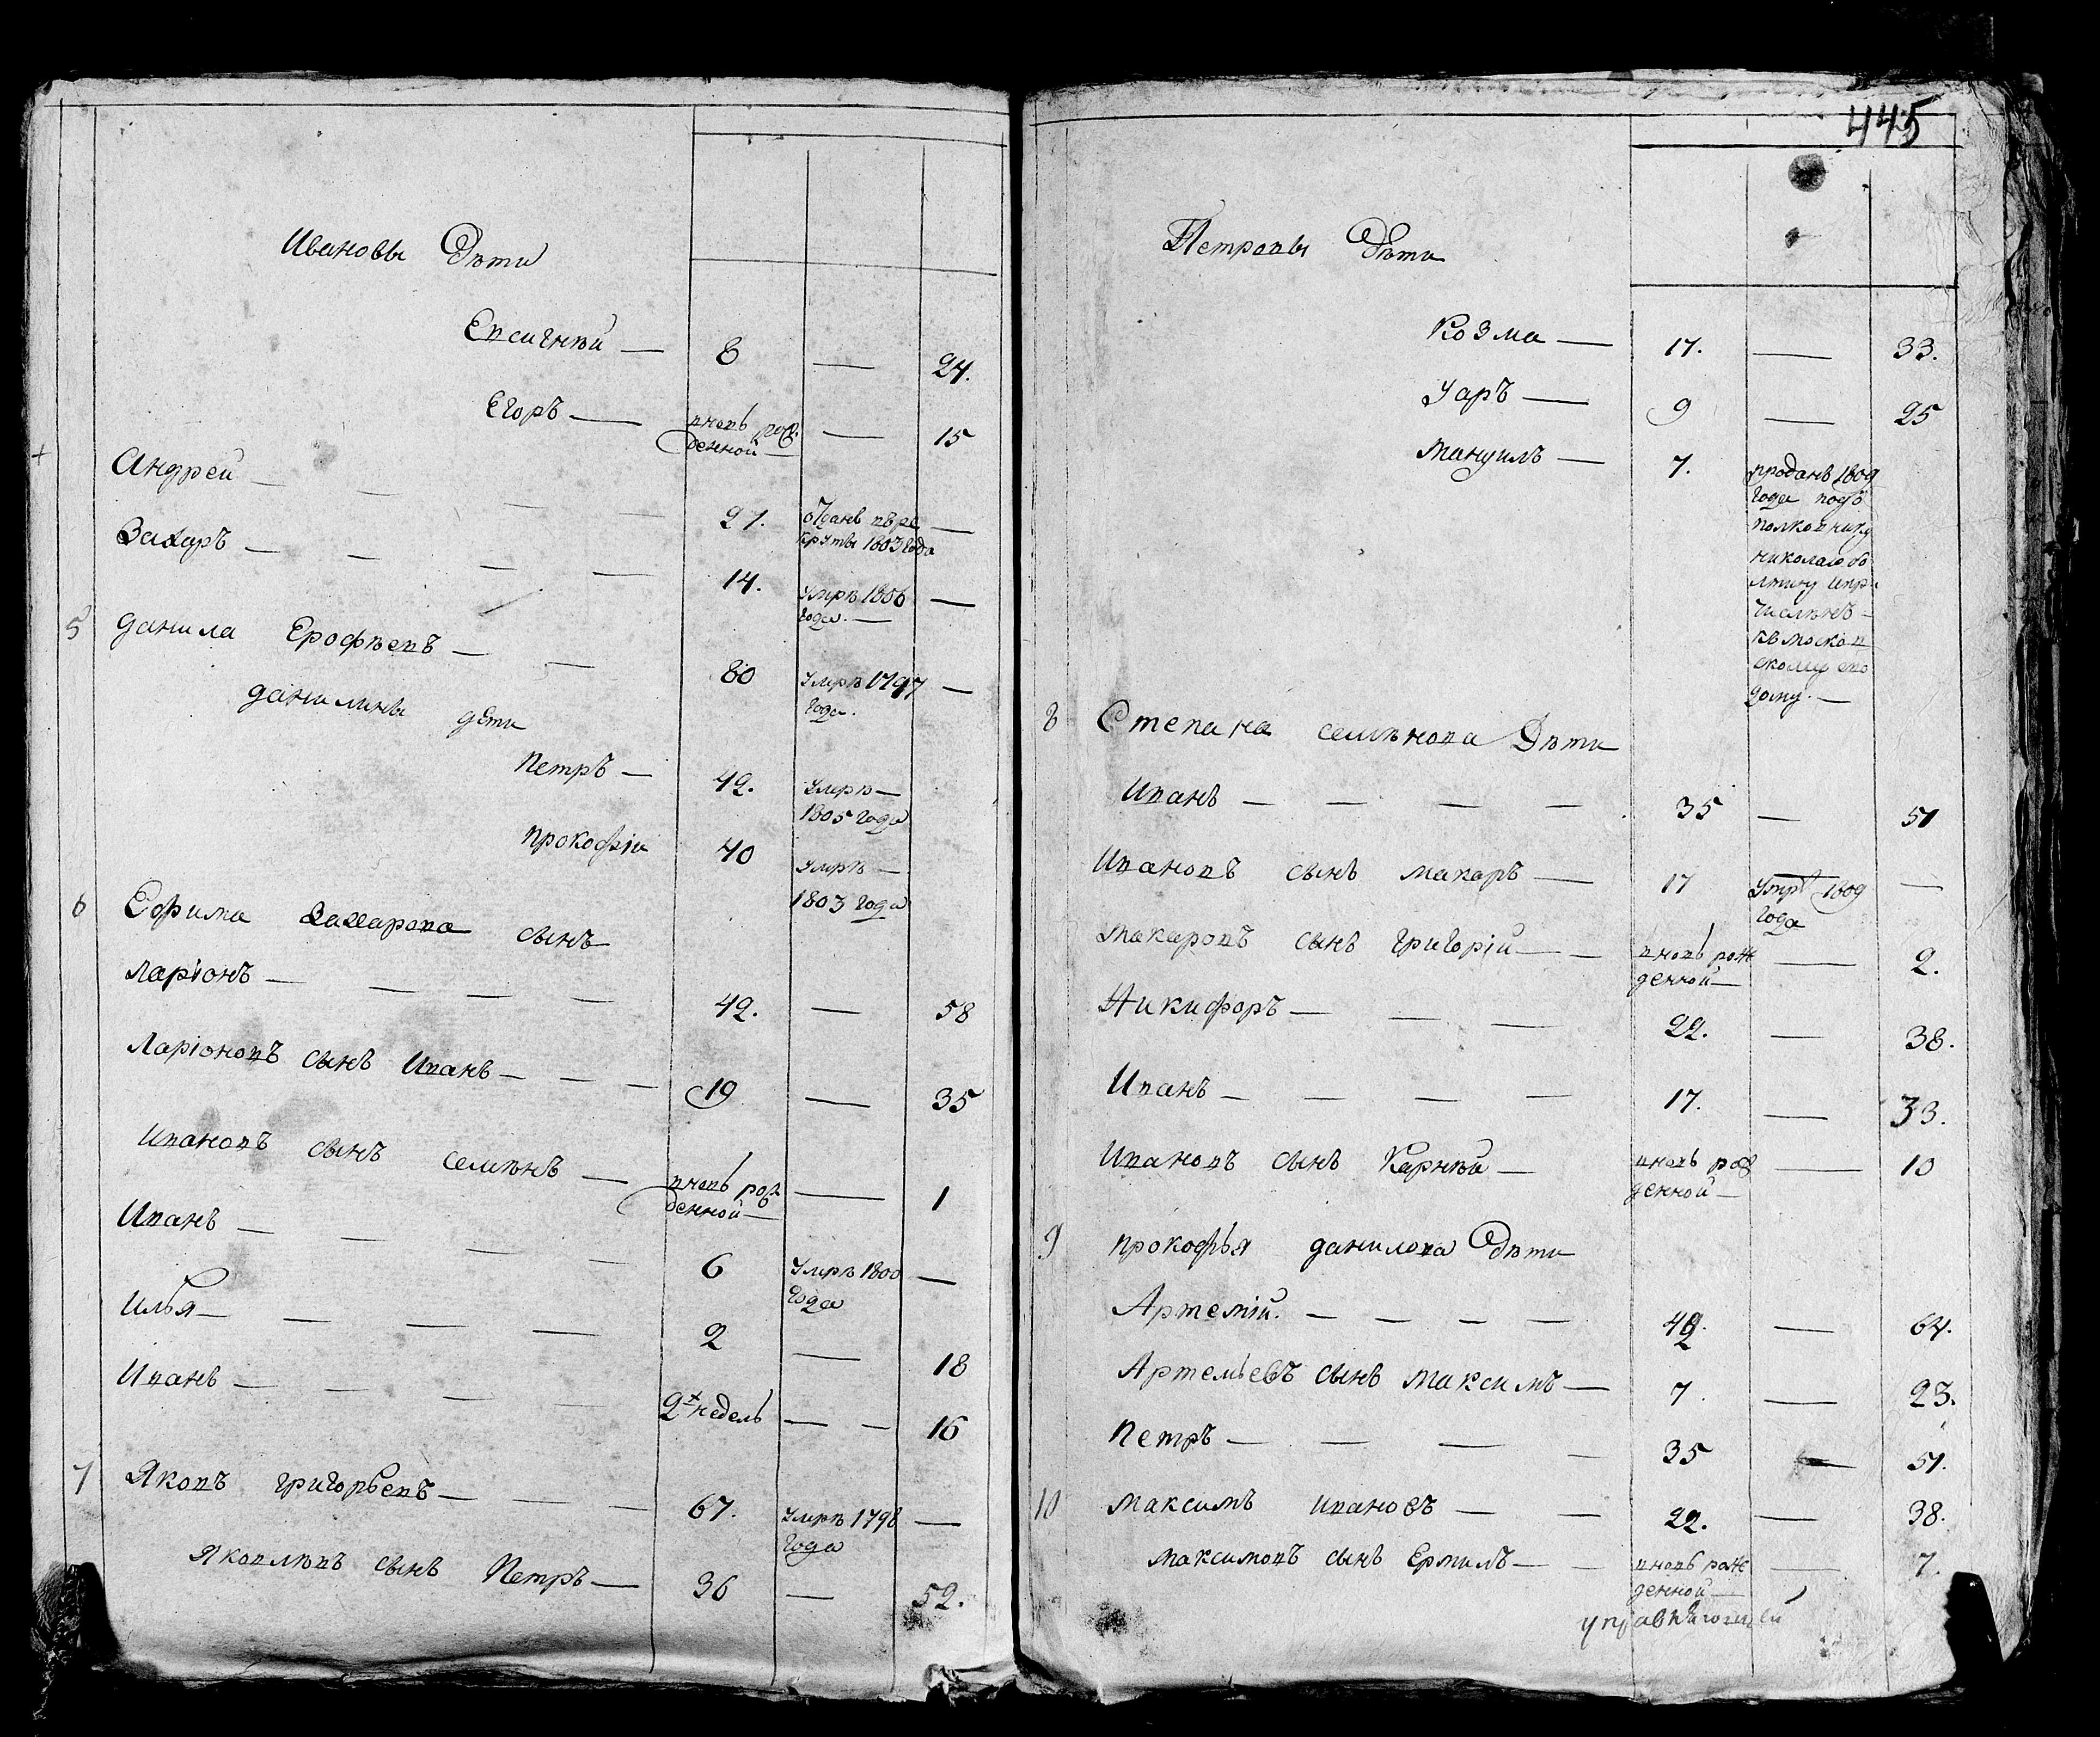 Ивановы Дѣти
Евсигнѣй — 8 — 24.
Егоръ — вновь рож
денной — — 15
Андрей — — — — 27. отданъ въ ре
круты 1803 года —
Захаръ — — — — 14. умрѣ 1806
года. — —
5 Данила Ерофѣевъ — — 80 умрѣ 1797
года. —
Данилины дѣти
Петръ — 42. умрѣ —
1805 года
Прокофій 40 умрѣ —
1803 года
6 Ефима Захарова сынъ
Ларіонъ — — — — 42. — 58
Ларіоновъ сынъ Иванъ — — — 19 — 35
Ивановъ сынъ Семѣнъ — вновь рож
денной — — 1
Иванъ — — — — 6 умрѣ 1800
года —
Илья — — — — 2 — 18
Иванъ — — — — 2х недель — — 16
7 Яковъ Григорьевъ — — — 67. умрѣ 1798
года —
Яковлѣвъ сынъ Петръ — 36 — 52.
445
Петровы Дѣти
Козма — 17. — 33.
Уаръ — 9 — 25
Мануилъ — 7. проданъ 1809
года подъ
полковнику
Николаю бо
лтину и пр
числѣнъ —
къ москов
скому
дому. —
8 Степана Семѣнова Дѣти
Иванъ — — — — 35 — 51
Ивановъ сынъ Макаръ — 17 умръ 1809
года —
Макаровъ сынъ Григорій — — вновь рож
денной — — 2.
Никифоръ — — — 22. — 38.
Иванъ — — — — 17. — 33.
Ивановъ сынъ Карнѣй — вновь рож
денной — — 10
9 Прокофья Данилова Дѣти
Артемій. — — — — 48. — 64.
Артемьевъ сынъ Максимъ — 7. — 23.
Петръ — — — — 35 — 51.
10 Максимъ Ивановъ — — 22. — 38.
Максимовъ сынъ Ермилъ — — вновь рож
денной — — 7.